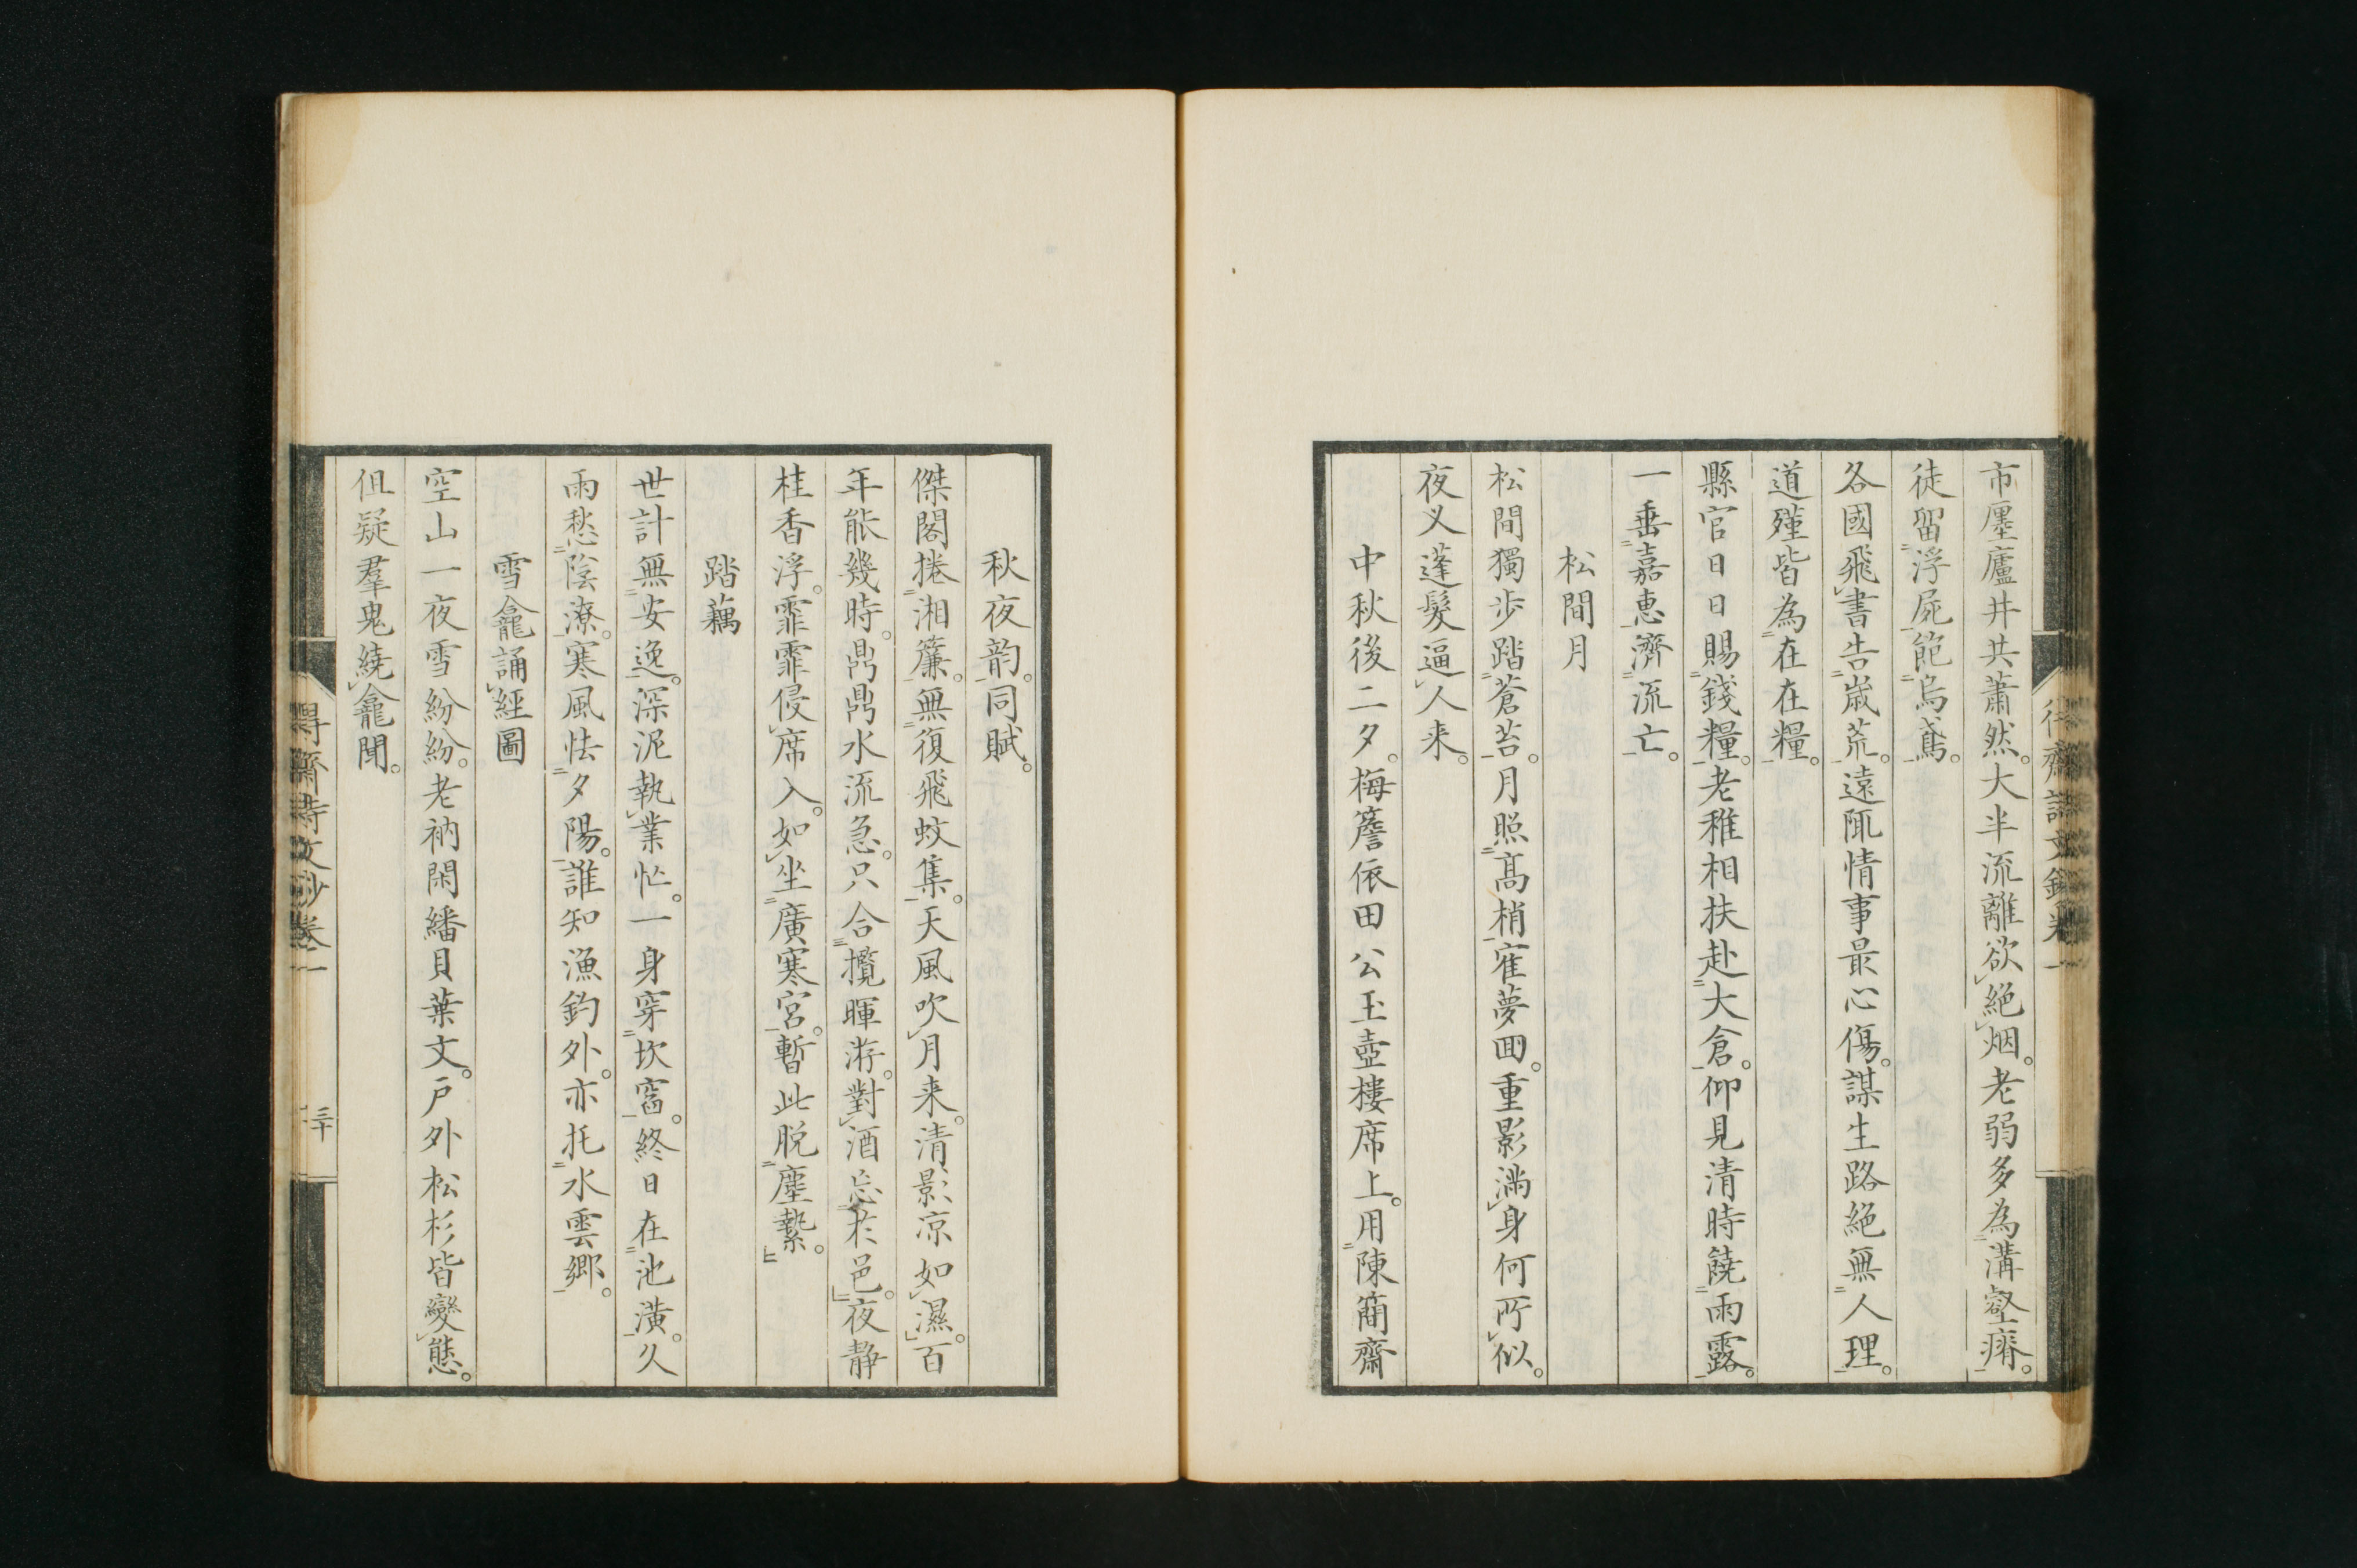 市廛廬井共蕭然。大半流離欲絶烟。老弱多為溝壑瘠。
徒留浮屍飽烏鳶。
各國飛書告歳荒。遠陬情事最心傷。謀生路絶無人理。
道殣皆為在在糧。
縣官日日賜錢糧。老稚相扶赴大倉。仰見清時饒雨露。
一垂嘉恵濟流亡。
松間月
松間獨歩踏蒼苔。月照髙梢寉夢囬。重影満身何所似。
夜叉蓬髮逼人来。
中秋後二夕。梅簷依田公玉壺樓席上。用陳簡齋
秋夜韵。同賦。
傑閣捲湘簾。無復飛蚊集。天風吹月来。清影凉如濕。百
年能幾時。鼎鼎水流急。只合攬暉游。對酒忘於邑。夜靜
桂香浮。霏霏侵席入。如坐廣寒宮。暫此脱塵縶。
踏藕
世計無安逸。深泥執業忙。一身穿坎窞。終日在池潢。久
雨愁陰潦。寒風怯夕陽。誰知漁釣外。亦托水雲郷。
雪龕誦經圖
空山一夜雪紛紛。老衲閑繙貝葉文。戸外松杉皆變態。
伹疑羣鬼繞龕聞。
得齋詩文鈔卷一
三十